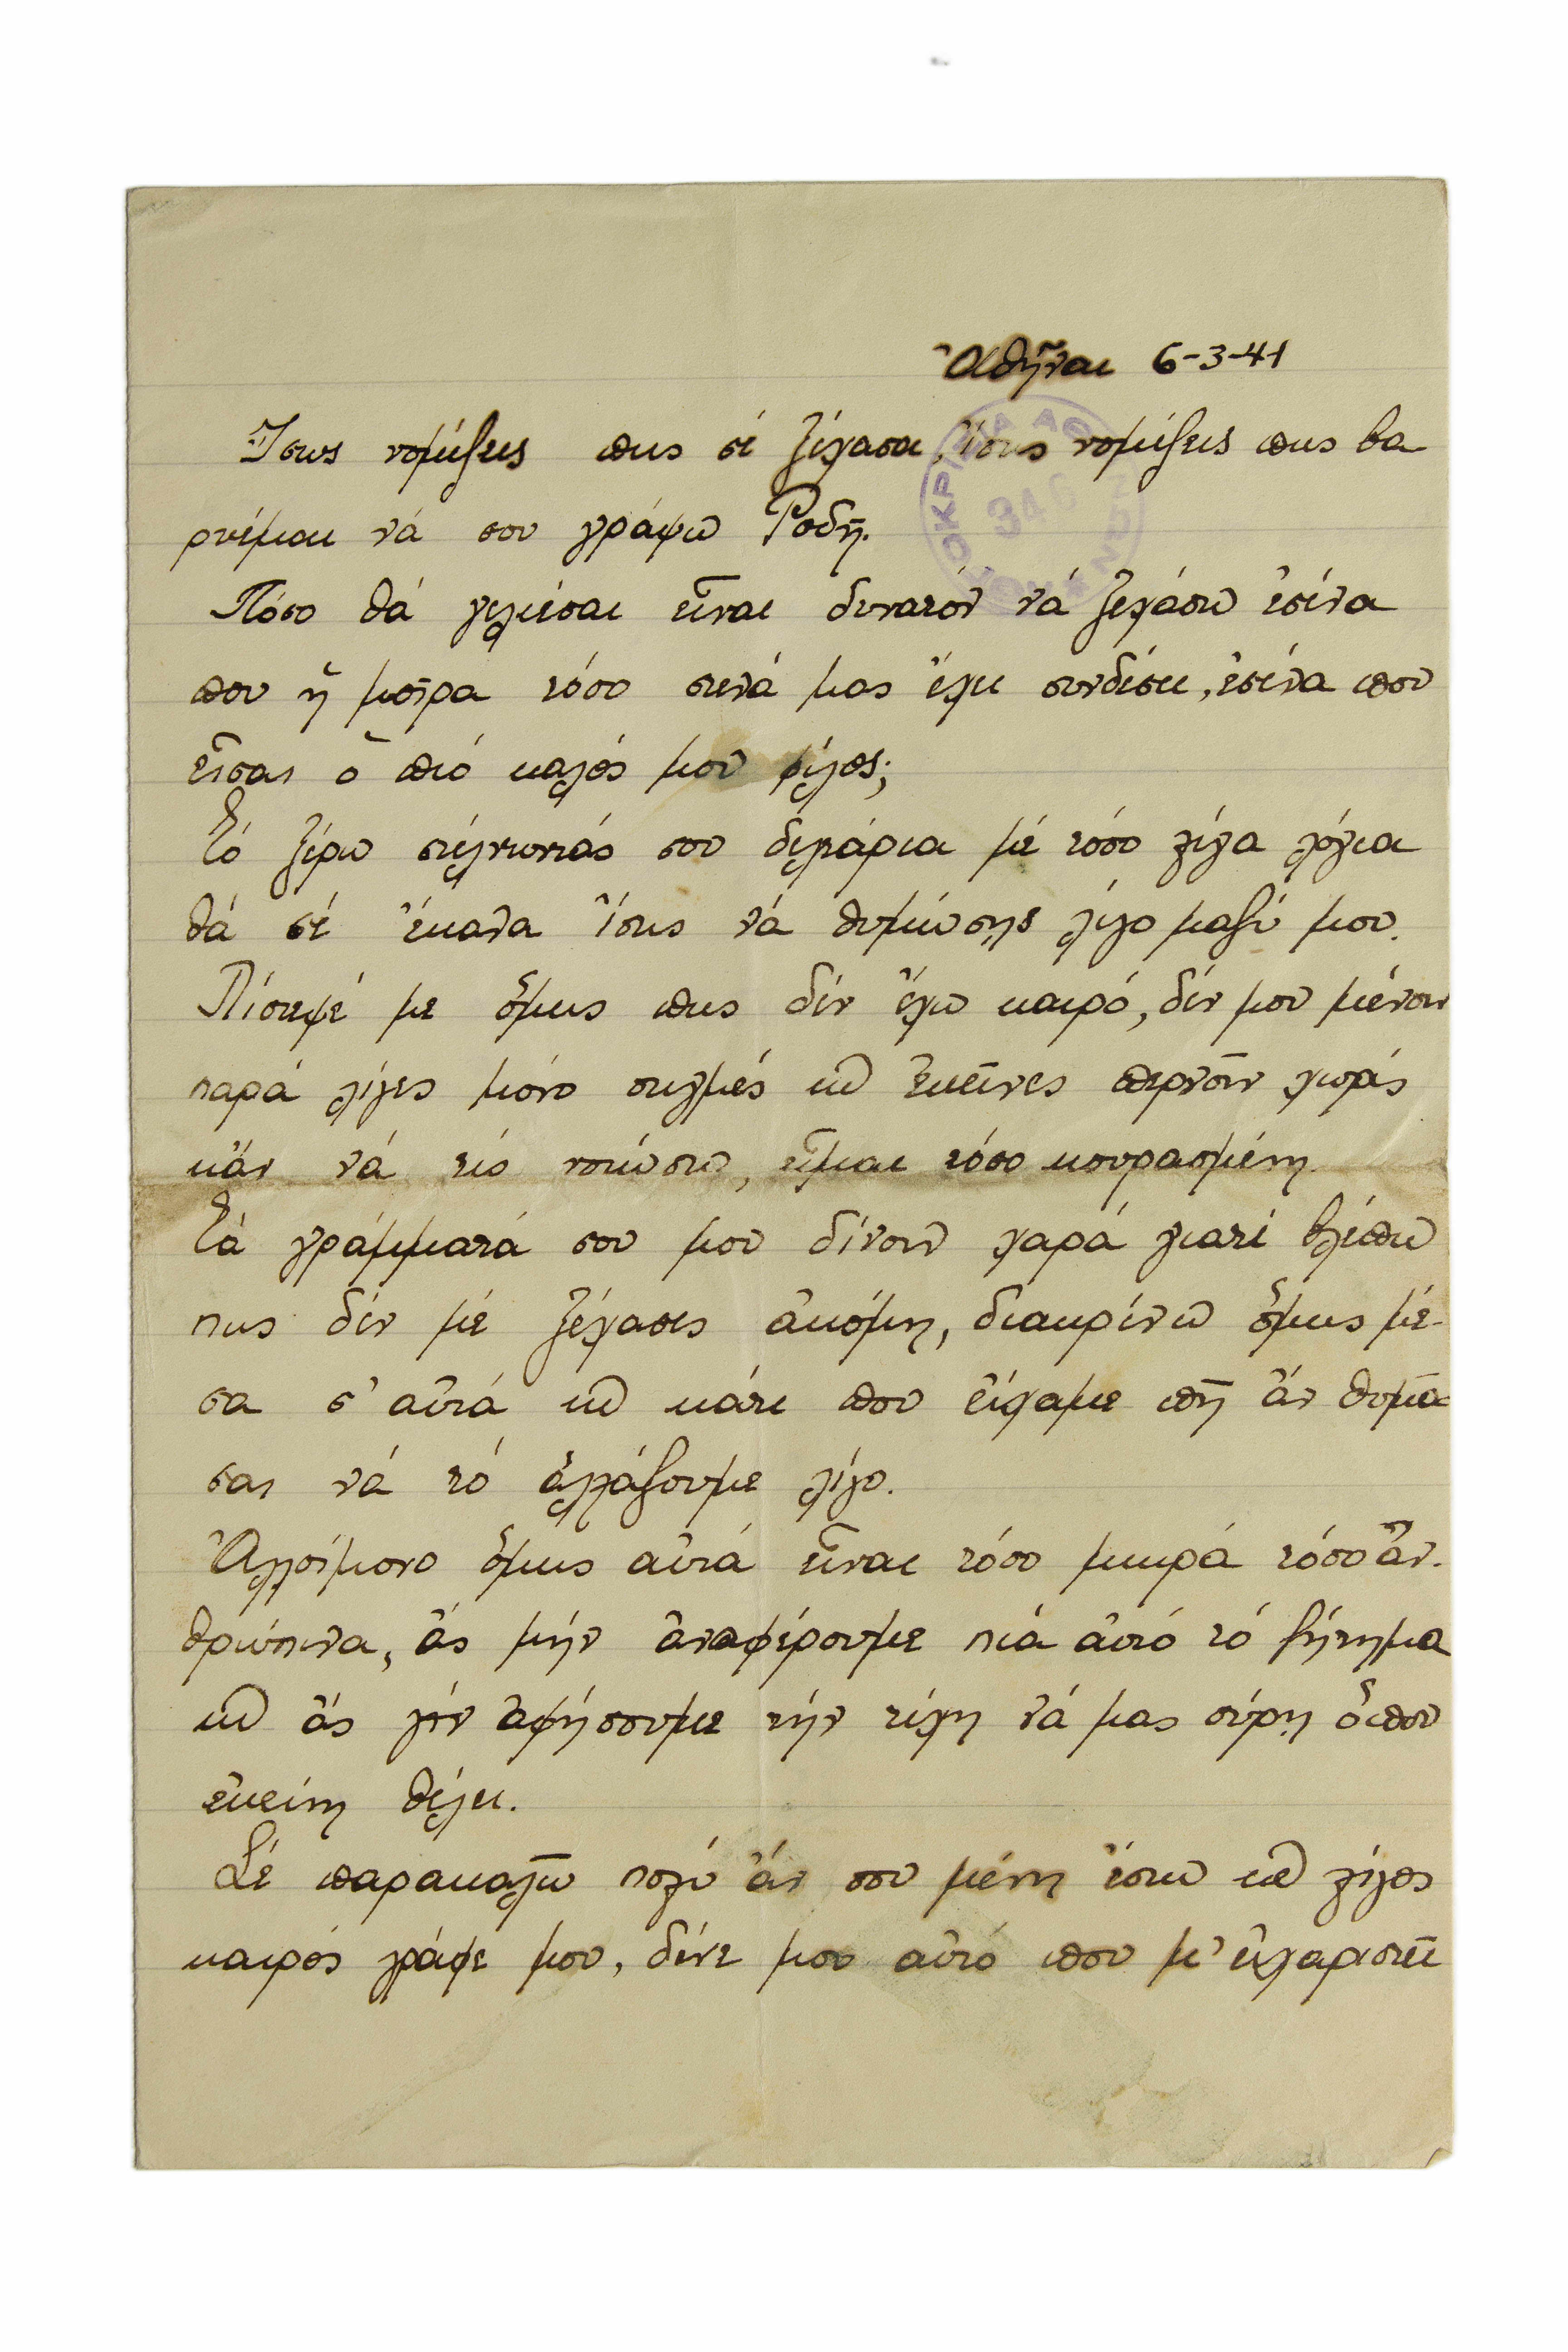 Ἀθῆναι 6-3-41
Ἴσως νομίζεις πως σέ ξέχασα, ἴσως νομίζεις πως βα
ρυέμαι νά σου γράψω Ροδῆ.
Πόσο θά γελιέσαι εἶναι δυνατόν νά ξεχάσω ἐσένα
που ἡ μοῖρα τόσο στενά μας ἔχει συνδέσει, ἐσένα που
εἶσαι ὁ πιό καλός μου φίλος;
Τό ξέρω στέλνοντάς σου δελτάρια μέ τόσο λίγα λόγια
θά σέ ἔκανα ἴσως νά θυμώσῃς λίγο μαζύ μου.
Πίστεψέ με ὅμως πως δέν ἔχω καιρό, δέν μου μένουν
παρά λίγες μόνο στιγμές καί ἐκεῖνες περνοῦν χωρίς
κἄν νά τίς νοιώσω, εἶμαι τόσο κουρασμένη.
Τά γράμματά σου μου δίνουν χαρά γιατί βλέπω
πως δέν μέ ξέχασες ἀκόμη, διακρίνω ὅμως μέ-
σα σ' αὐτά καί κάτι που εἴχαμε πῆ ἄν θυμᾶ
σαι νά τό ἀλλάξουμε λίγο.
Ἀλλοίμονο ὅμως αὐτά εἶναι τόσο μικρά τόσο ἀν-
θρώπινα, ἄς μήν ἀναφέρουμε πιά αὐτό τό ζήτημα
καί ἄς ἀφήσουμε τήν τύχη νά μας σύρῃ ὅπου
ἐκείνη θέλει.
Σέ παρακαλῶ πολύ ἄν σου μένη ἔστω καί λίγος
καιρός γράψε μου, δίνε μου αὐτό που μ' εὐχαριστεῖ
346